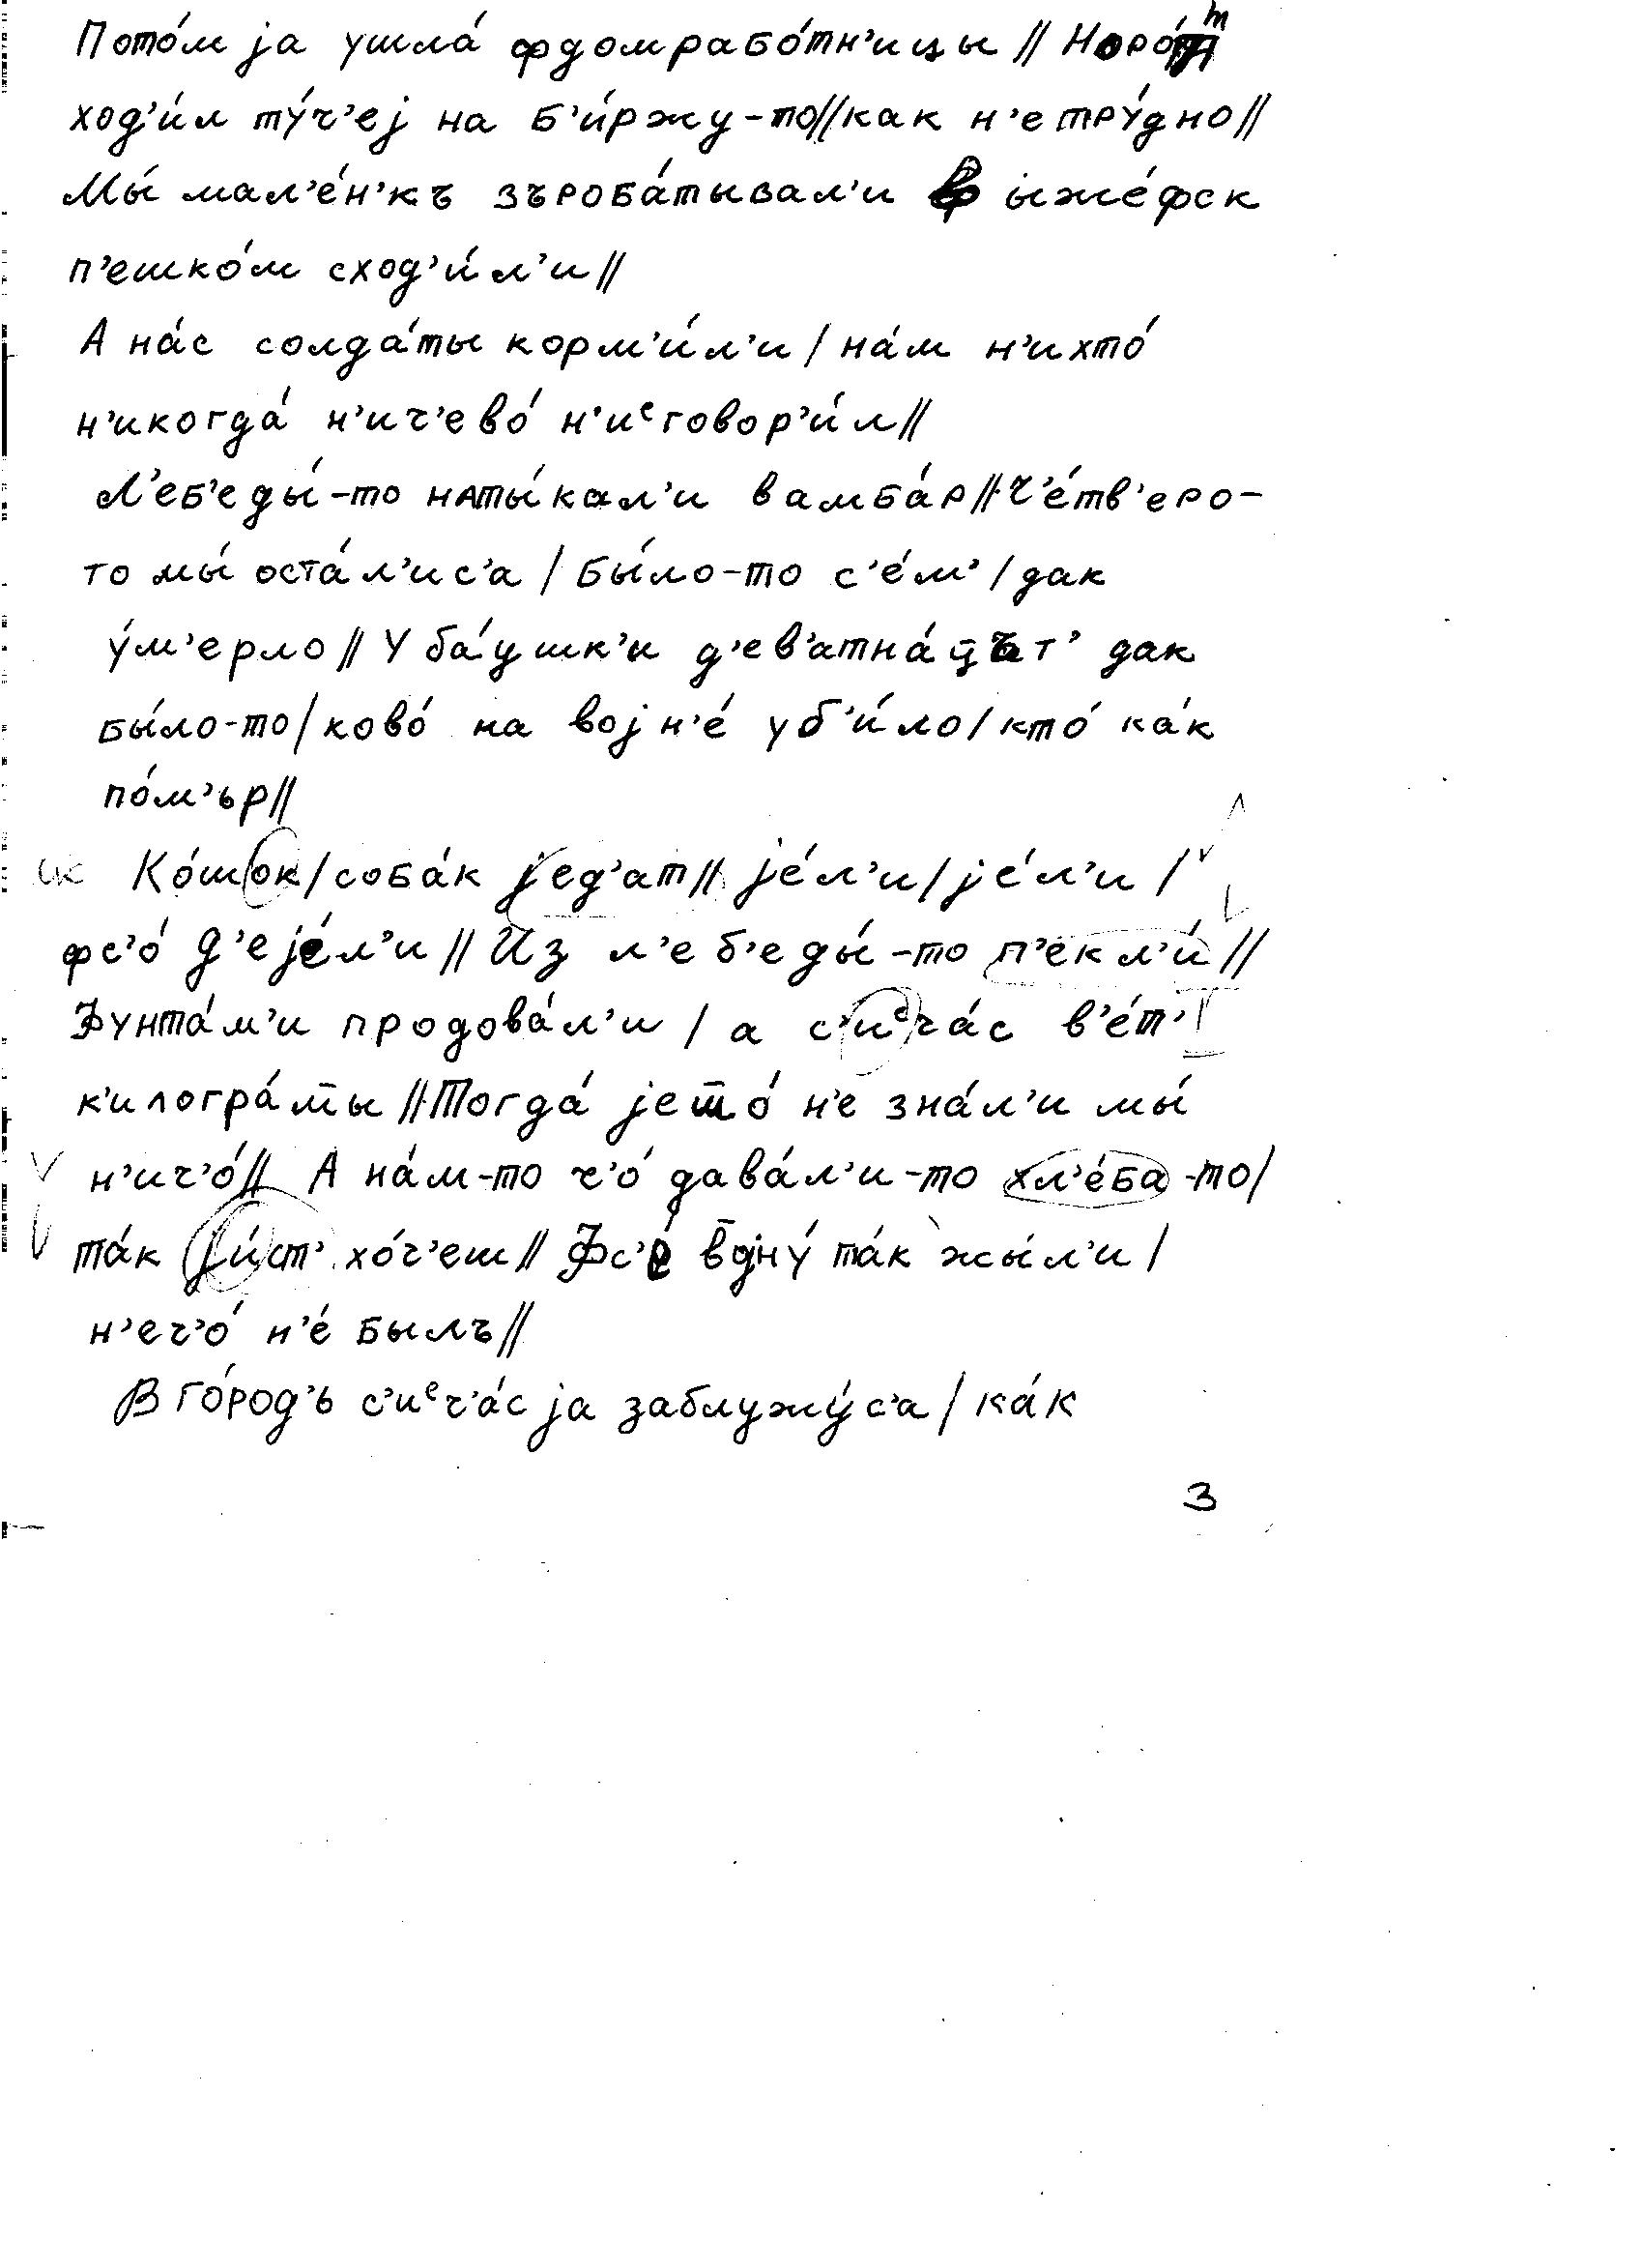 Пото́м jа ушла́ фдомрабо́тн'ицы // Норо́т
ход'и́л ту́ч'еj на б'и́ржу-то // как н'етру́дно //
Мы́ мал'е́н'къ зъроба́тывал'и в ыже́фск
п'ешко́м сход'и́л'и //
А на́с солда́ты корм'и́л'и / на́м н'ихто́
н'икогда́ н'ич'ево́ н'иᵉговор'и́л //
Л'еб'еды́-то наты́кал'и вамба́р // Ч'е́тв'еро-
то мы́ оста́л'ис'а / бы́ло-то с'е́м' / дак
у́м'ерло // У ба́ушк'и д'ев'атна́ц̄ът' дак
бы́ло-то / ково́ на воjн'е́ уб'и́ло / кто́ ка́к
по́м'ьр //
ик Ко́шок / соба́к jед'ат // jе́л'и / jе́л'и /
фс'о́ д'еjе́л'и // Из л'еб'еды́-то п'екл'и́ //
Фунта́м'и продова́л'и / а с'иᵉча́с в'е́т'
к'илогра́м̄ы // Тогда́ jет̄о́ н'е зна́л'и мы́
н'ич'о́ // А на́м-то ч'о́ дава́л'и-то хл'е́ба-то /
та́к jи́ст' хо́ч'еш // Фс'у́ во̄jну́ та́к жы́л'и /
н'еч'о́ н'е́ былъ //
В го́род'ь с'иᵉч'а́с jа заблужу́с'а / ка́к
3